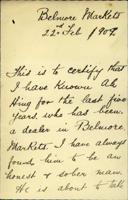 Belmore Markets
22nd Feb 1909
This is to certify that
I have known Ah
Hing for the last five
Years. who has been
a dealer in Belmore
Markets. I have always
found him to be an
honest & sober man.
He is about to take